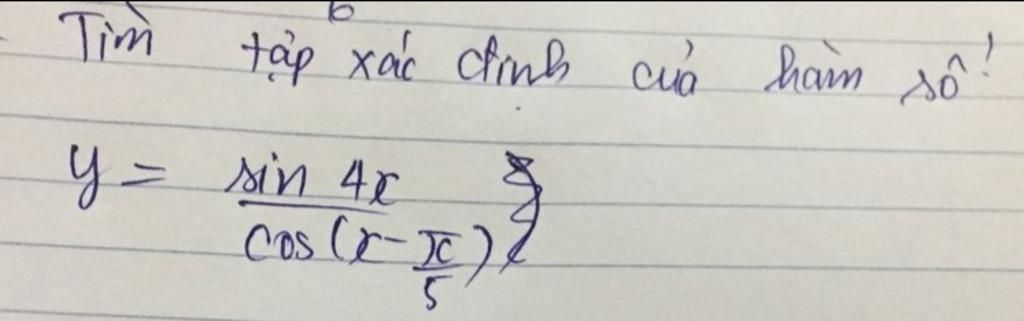 Tìm tập xác định của hàm số
y = sin 4x / cos(x - π/5)